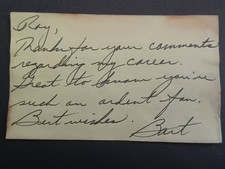 Ray,
Thanks for your comments
regarding my career.
Great to know you're
such an ardent fan.
Best wishes.
Bart